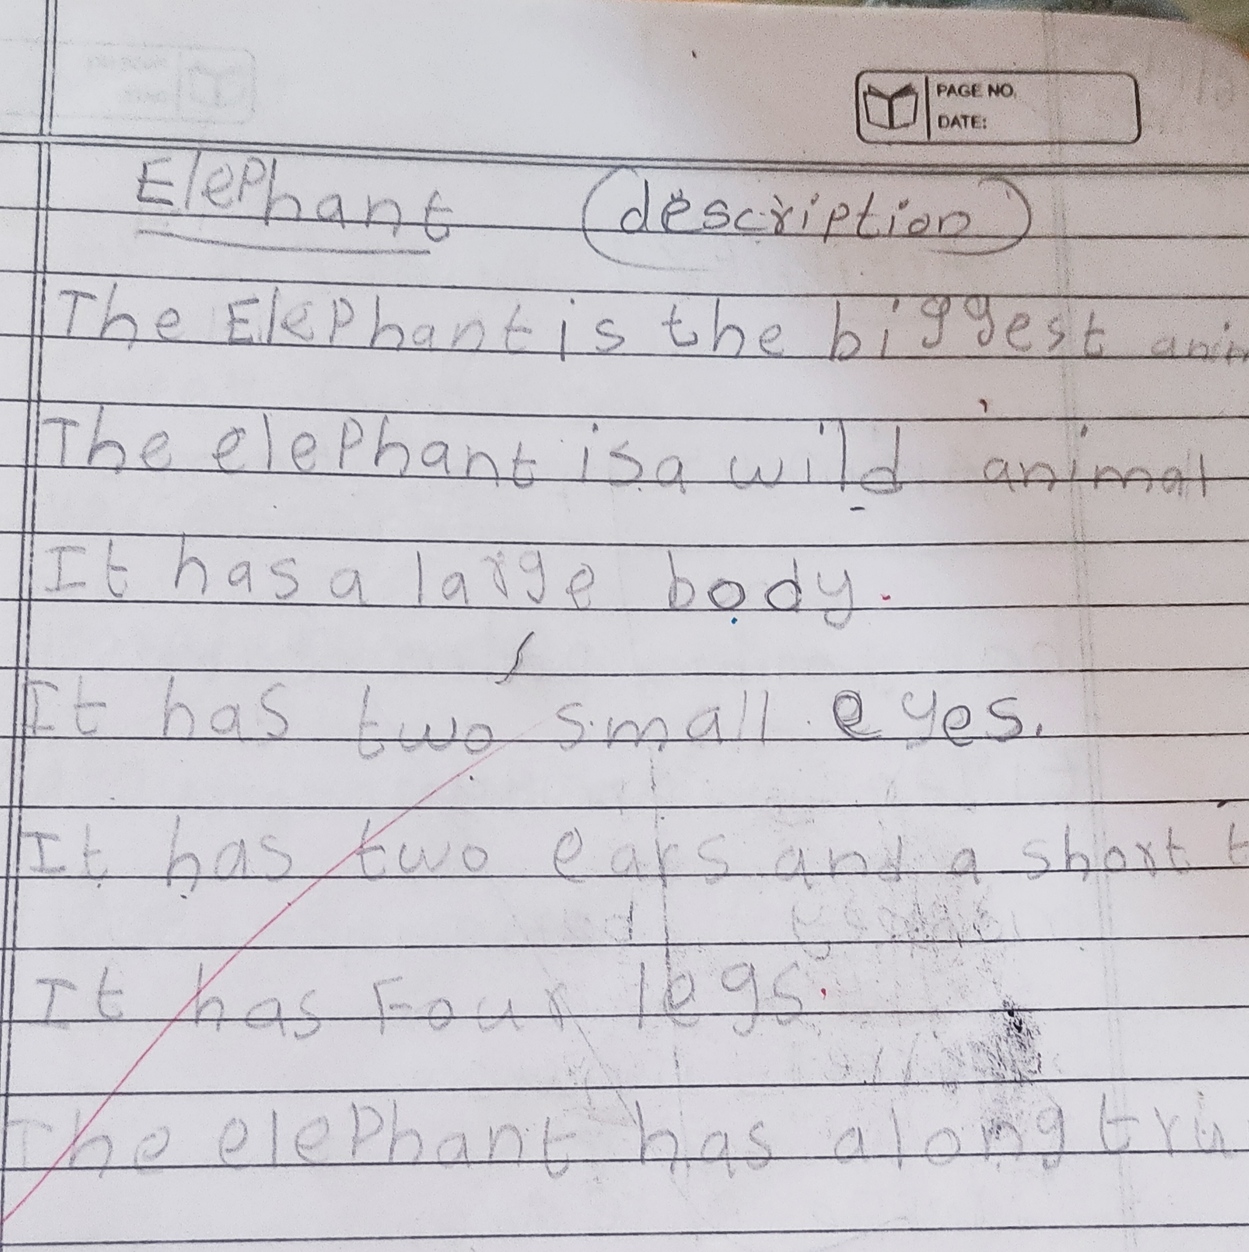 PAGE NO.
DATE:
ElePhant (description)
The ElePhant is the biggest anim
The elePhant is a wild animal
It has a large body.
It has two small eyes.
It has two ears and a short t
It has Four legs.
The elePhant has a long tru